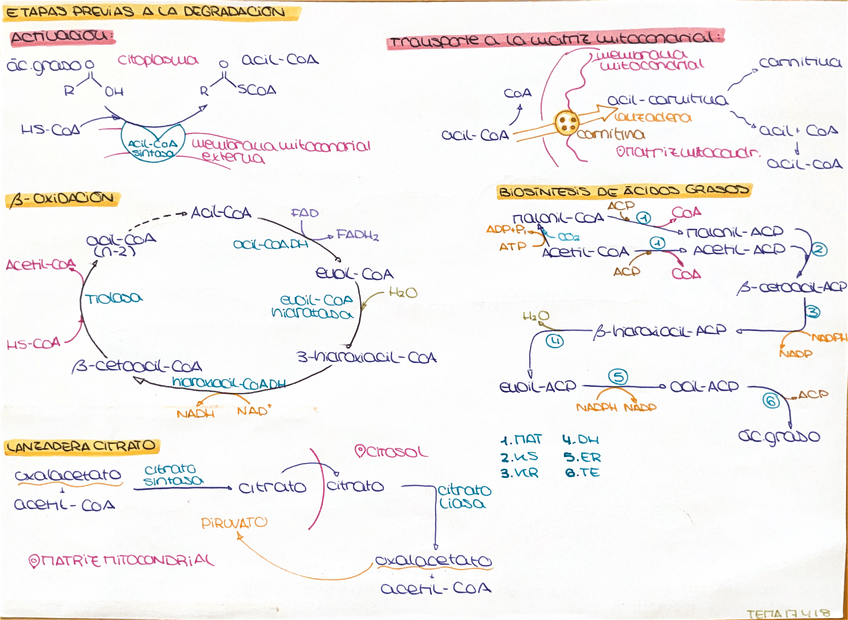 ETAPAS PREVIAS A LA DEGRADACIÓN
ACTIVACIÓN:
ác.graso
citoplasma
acil-CoA
O
R
OH
O
R
SCoA
HS-CoA
Acil-CoA
sintasa
membrana mitocondrial
externa
Transporte a la matriz mitocondrial:
membrana
mitocondrial
CoA
acil-CoA
acil-carnitina
lanzadera
carnitina
matriz mitocondr.
carnitina
acil + CoA
acil-CoA
β-OXIDACIÓN
Acil-CoA
FAD
FADH₂
acil-CoADH
enoil-CoA
H₂O
enoil-CoA
hidratasa
3-hidroxiacil-CoA
hidroxiacil-CoADH
NADH
NAD⁺
β-cetoacil-CoA
HS-CoA
Tiolasa
Acetil-CoA
acil-CoA
(n-2)
BIOSÍNTESIS DE ÁCIDOS GRASOS
Malonil-CoA
ACP
1
CoA
Malonil-ACP
ADP+Pi
CO₂
ATP
Acetil-CoA
1
Acetil-ACP
ACP
CoA
2
β-cetoacil-ACP
3
NADPH
NADP
β-hidroxiacil-ACP
H₂O
4
enoil-ACP
5
NADPH NADP
acil-ACP
6
ACP
ác.graso
1.MAT 4.DH
2.KS 5.ER
3.KR 6.TE
LANZADERA CITRATO
oxalacetato
+
acetil-CoA
citrato
sintasa
citrato
citrato
CITOSOL
citrato
liasa
PIRUVATO
MATRIZ MITOCONDRIAL
oxalacetato
+
acetil-CoA
TEMA 17 Y 18